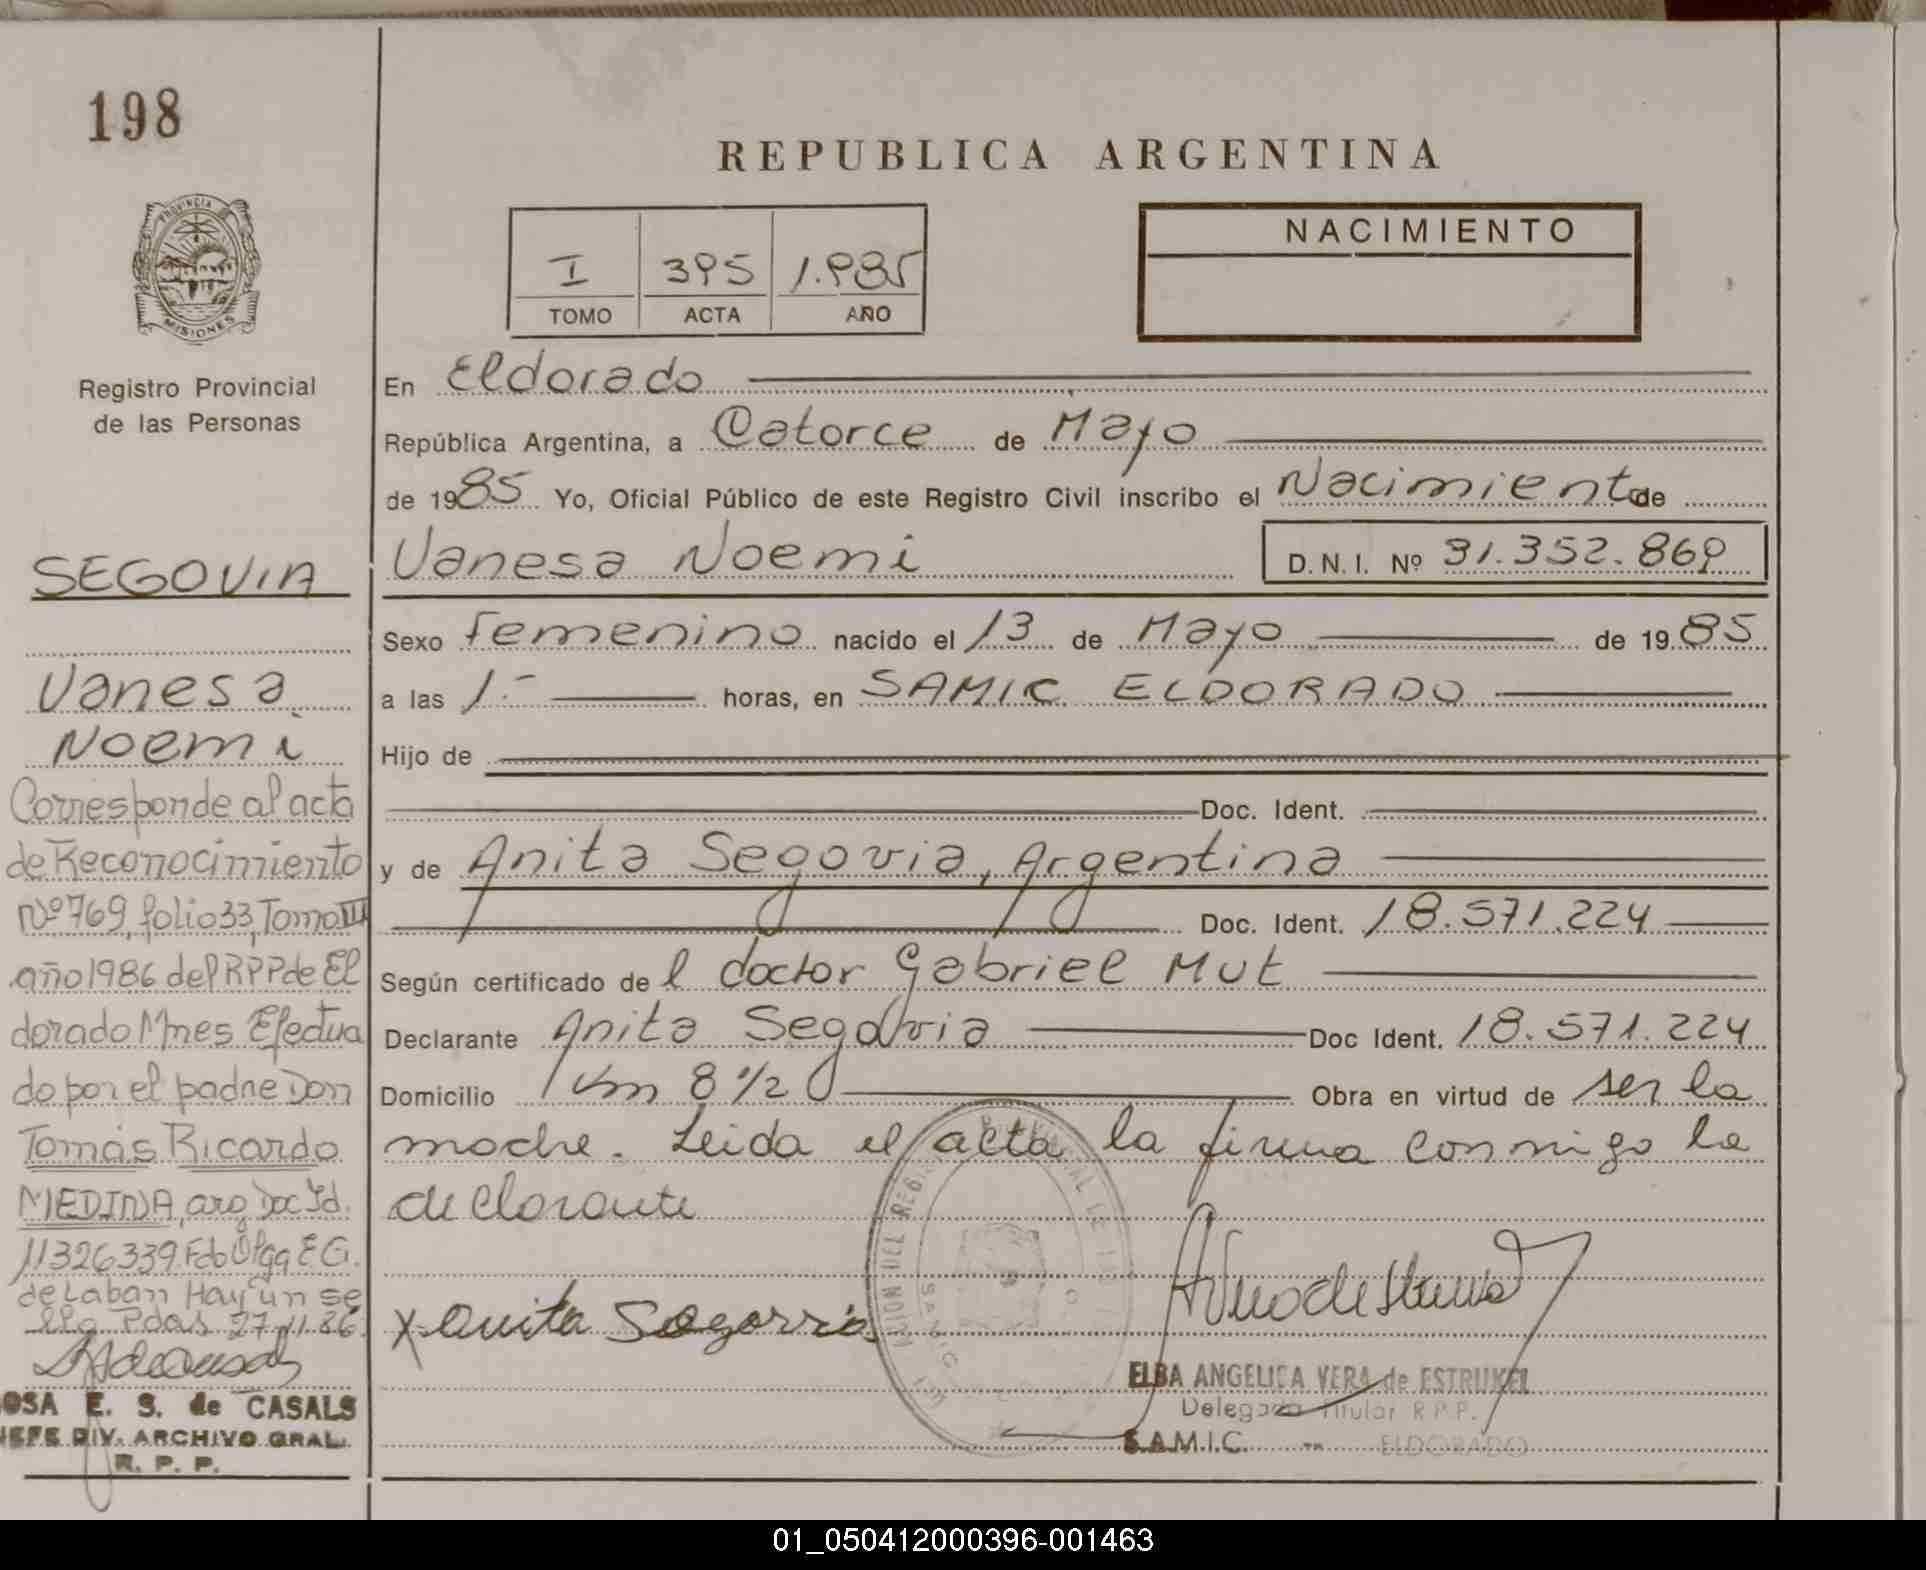 198
REPUBLICA ARGENTINA
PROVINCIA
MISIONES
Registro Provincial
de las Personas
I 395 1.985
TOMO ACTA AÑO
NACIMIENTO
En Eldorado
República Argentina, a Catorce de Mayo
de 1985 Yo, Oficial Público de este Registro Civil inscribo el Nacimiento de
Vanesa Noemi D.N.I. Nº 31.352.869
Sexo Femenino nacido el 13 de Mayo de 1985
a las 1.- horas, en SAMIC ELDORADO
Hijo de
Doc. Ident.
y de Anita Segovia, Argentina
Doc. Ident. 18.571.224
Según certificado de l doctor Gabriel Mut
Declarante Anita Segovia Doc Ident. 18.571.224
Domicilio Km 8 1/2 Obra en virtud de ser la
madre. Leida el acta la firma conmigo la
declarante
X Anita Segovia
ELBA ANGELICA VERA de ESTRUKEL
Delegada Titular R.P.P.
S.A.M.I.C. - ELDORADO
SEGOVIA
Vanesa
Noemi
Corresponde al acta
de Reconocimiento
Nº 769, folio 33, Tomo III
año 1986 del RPP de El
dorado Mnes Efectua
do por el padre Don
Tomás Ricardo
MEDINA, arg Doc Id.
11326339 Fdo Olga E G.
de Laban Hay un se
llo Pdas 27 11 86.
OSA E. S. de CASALS
JEFE DIV. ARCHIVO GRAL.
R. P. P.
01_050412000396-001463